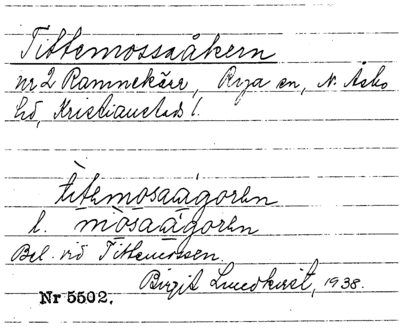 Tittemossaåkern
nr 2 Ramnekärr, Rya sn, N. Åsbo
hd, Kristianstads l.
tìtemosaágoren
l. mòsaágoren
Bel. vid Tittemossen.
Birgit Lundkvist, 1938.
Nr 5502.